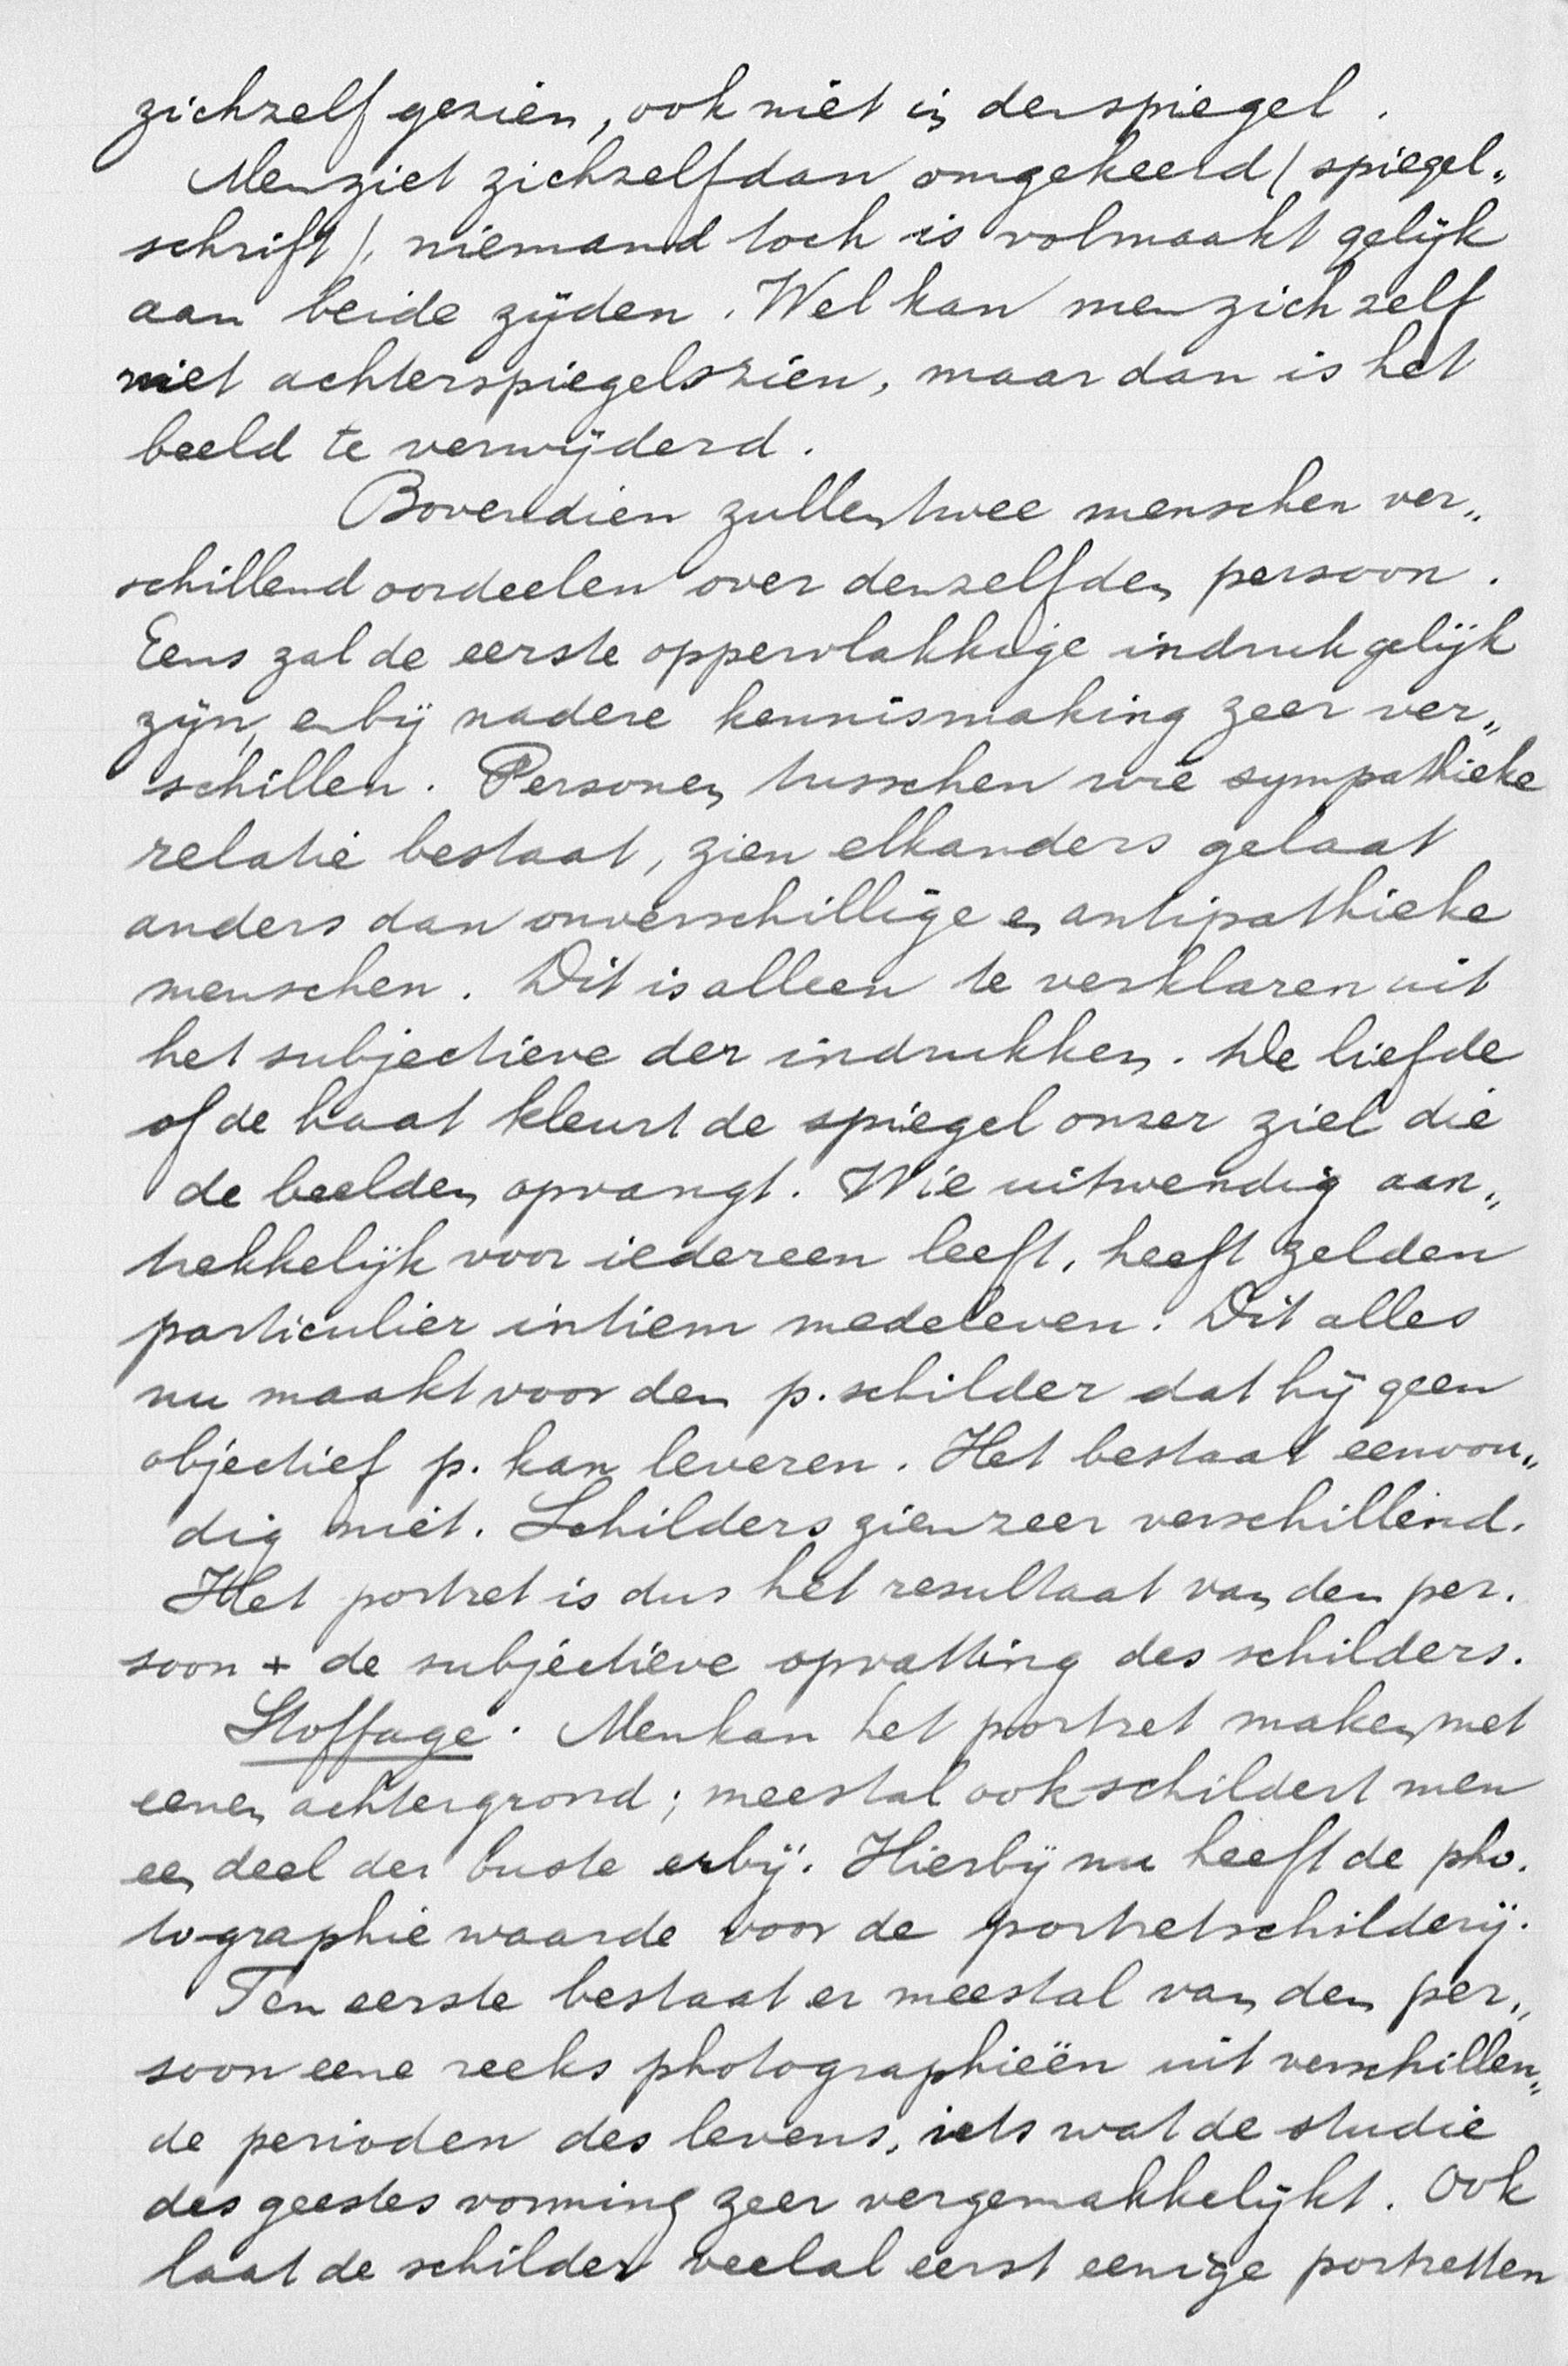 zichzelf gezien, ook niet in den spiegel.
Men ziet zichzelf dan omgekeerd (spiegel„
schrift), niemand toch is volmaakt gelijk
aan beide zijden. Wel kan men zichzelf
met achterspiegels zien, maar dan is het
beeld te verwijderd.
Bovendien zullen twee menschen ver„
schillend oordeelen over denzelfden persoon.
Eens zal de eerste oppervlakkige indruk gelijk
zijn, en bij nadere kennismaking zeer ver„
schillen. Personen tusschen wie sympathieke
relatie bestaat, zien elkanders gelaat
anders dan onverschillige en antipathieke
menschen. Dit is alleen te verklaren uit
het subjectieve der indrukken. De liefde
of de haat kleurt de spiegel onzer ziel die
de beelden opvangt. Wie uitwendig aan„
trekkelijk voor iedereen leeft, heeft zelden
particulier intiem medeleven. Dit alles
nu maakt voor den p. schilder dat hij geen
objectief p. kan leveren. Het bestaat eenvou„
dig niet. Schilders zien zeer verschillend.
Het portret is dus het resultaat van den per.
soon + de subjectieve opvatting des schilders.
Stoffage. Men kan het portret maken met
eenen achtergrond; meestal ook schildert men
een deel der buste erbij. Hierbij nu heeft de pho.
tographie waarde voor de portretschilderij.
Ten eerste bestaat er meestal van den per„
soon eene reeks photographieën uit verschillen„
de perioden des levens, iets wat de studie
des geestes vorming zeer vergemakkelijkt. Ook
laat de schilder veelal eerst eenige portretten